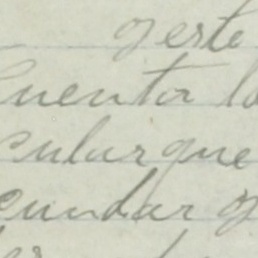 y este
cuenta la
cular que
cundar y